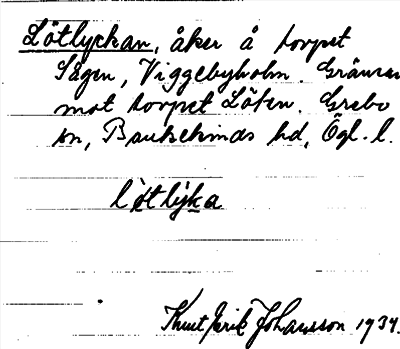 Lötlyckan, åker å torpet
Sågen, Viggebyholm. Gränsar
mot torpet Löten. Grebo
sn, Bankekinds hd, Ögl. l.
Knut Erik Johansson 1934.